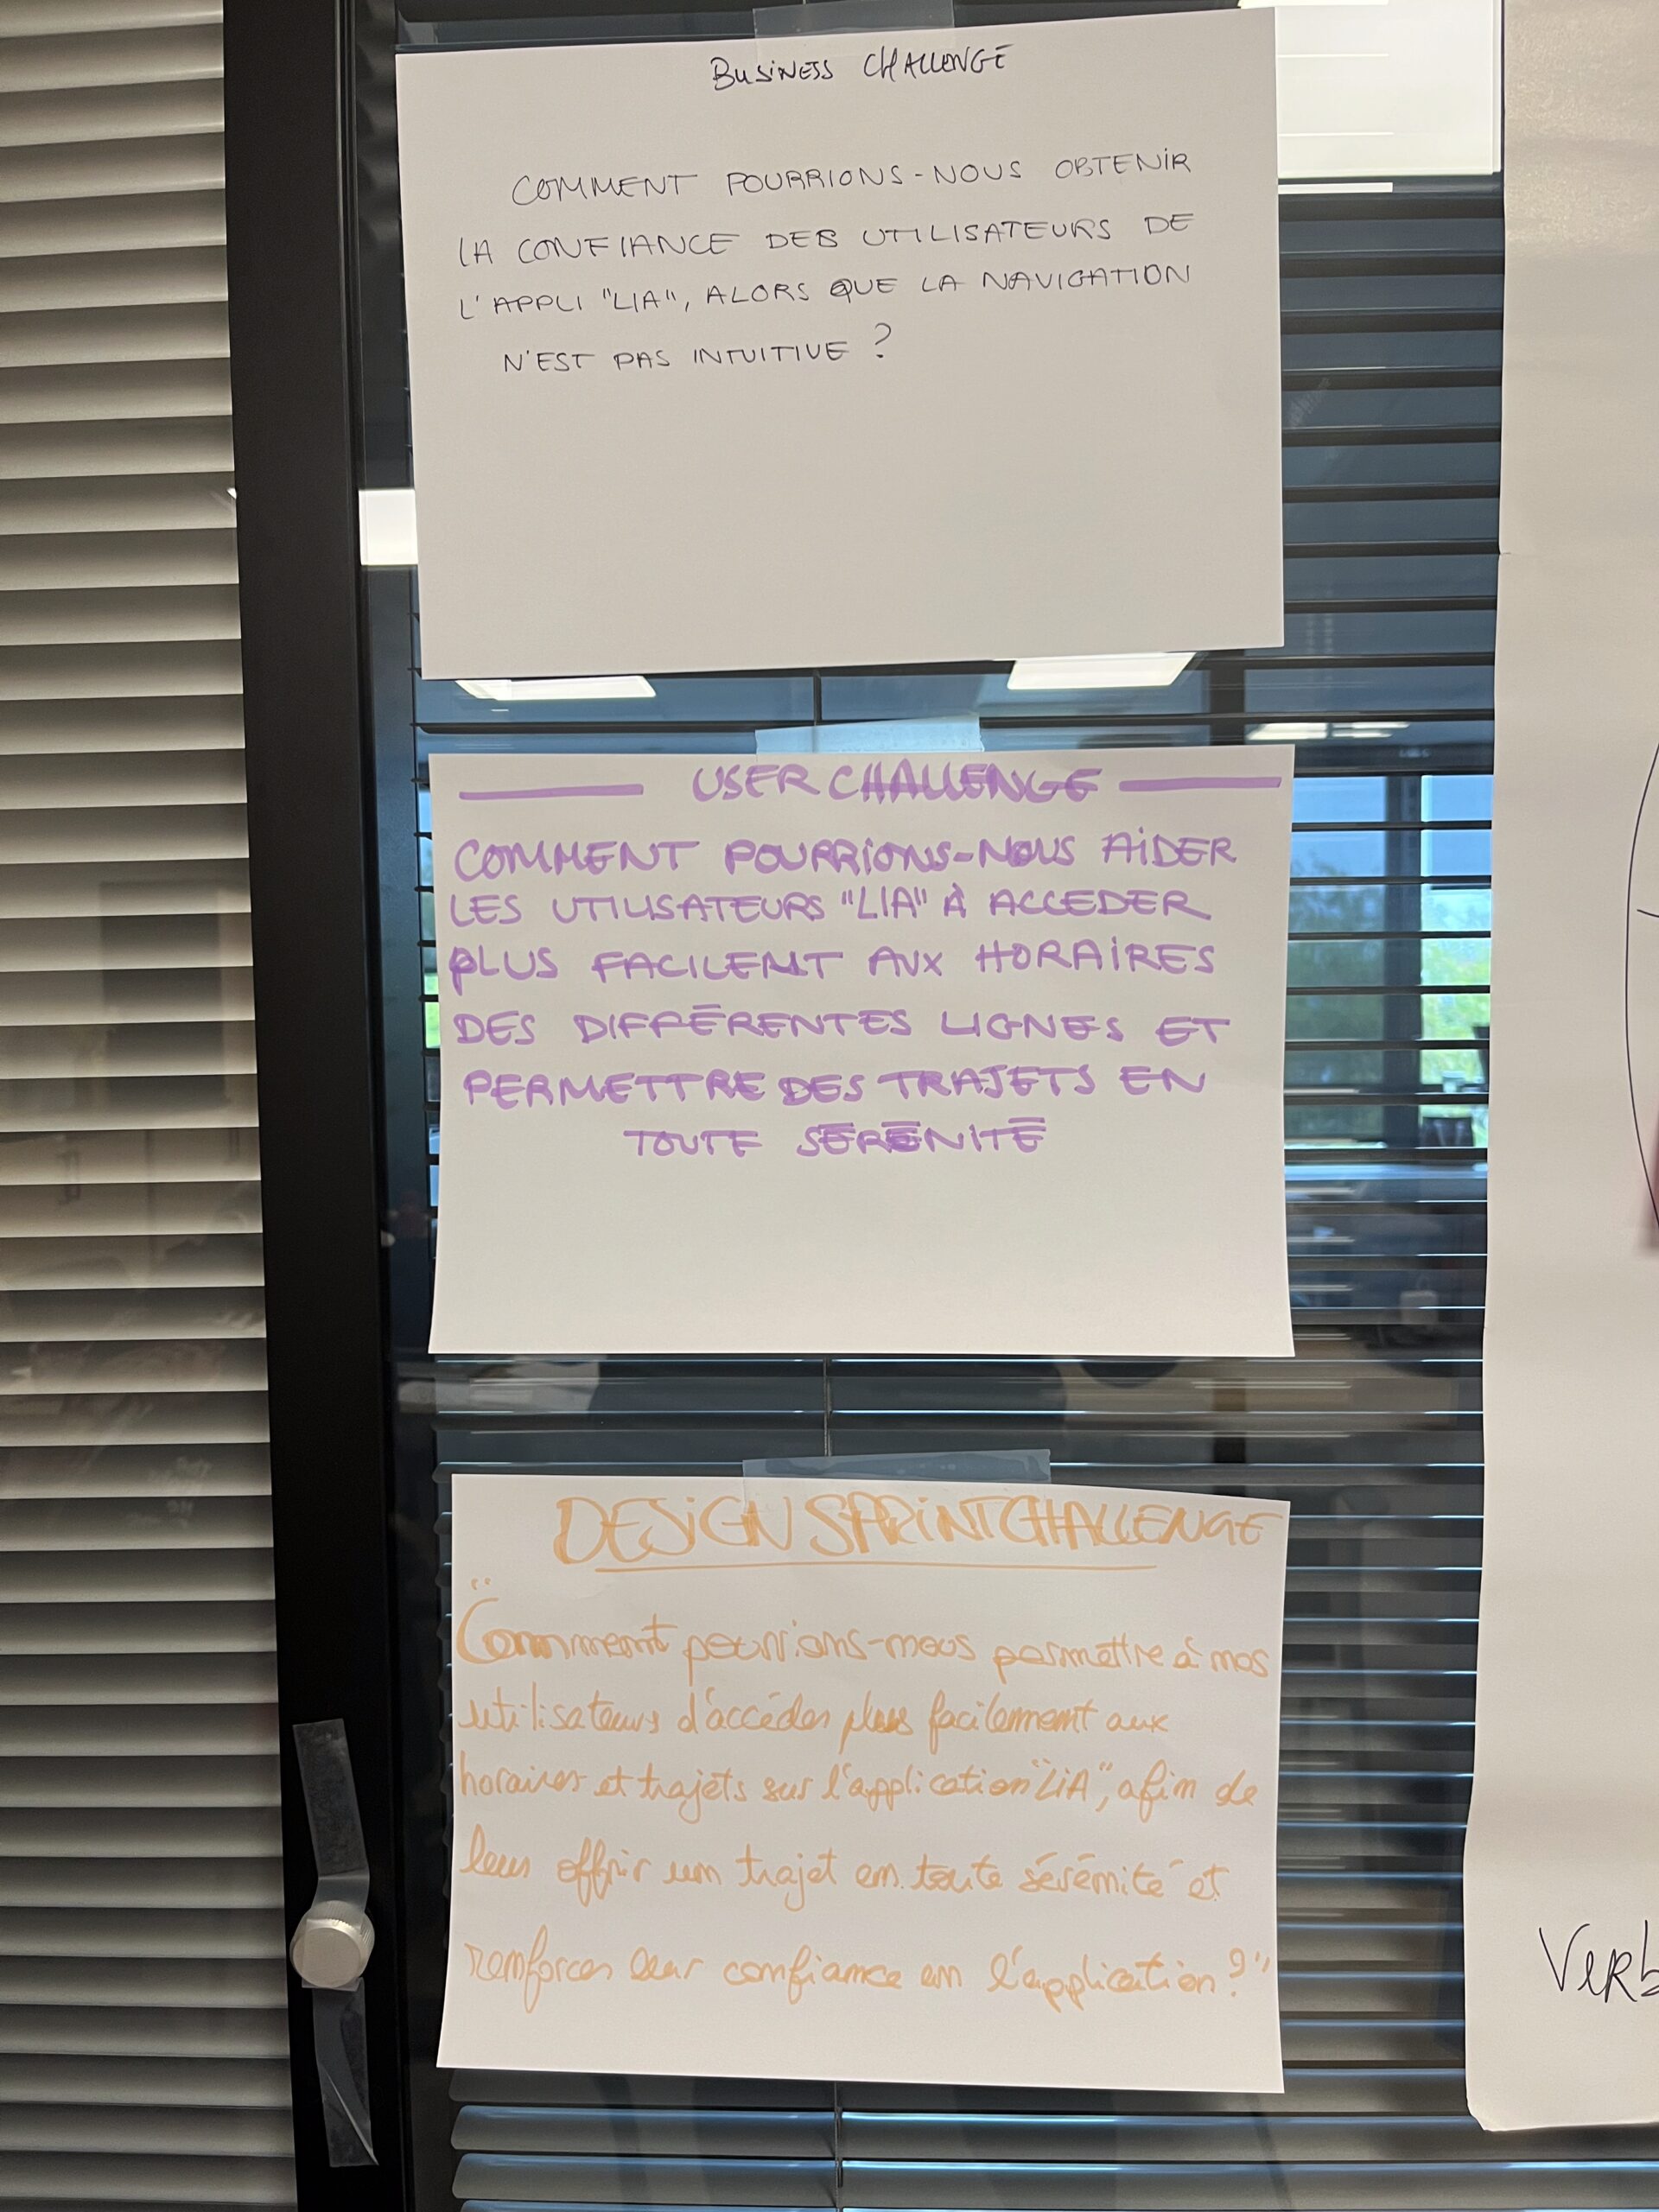 BUSINESS CHALLENGE
COMMENT POURRIONS-NOUS OBTENIR
LA CONFIANCE DES UTILISATEURS DE
L'APPLI "LIA", ALORS QUE LA NAVIGATION
N'EST PAS INTUITIVE ?
USER CHALLENGE
COMMENT POURRIONS-NOUS AIDER
LES UTILISATEURS "LIA" À ACCEDER
PLUS FACILEMT AUX HORAIRES
DES DIFFÉRENTES LIGNES ET
PERMETTRE DES TRAJETS EN
TOUTE SÉRÉNITÉ
DESIGN SPRINT CHALLENGE
"Comment pourrions-nous permettre à nos
utilisateurs d'accéder plus facilement aux
horaires et trajets sur l'application "LIA", afin de
leur offrir un trajet en toute sérénité et
renforcer leur confiance en l'application ?"